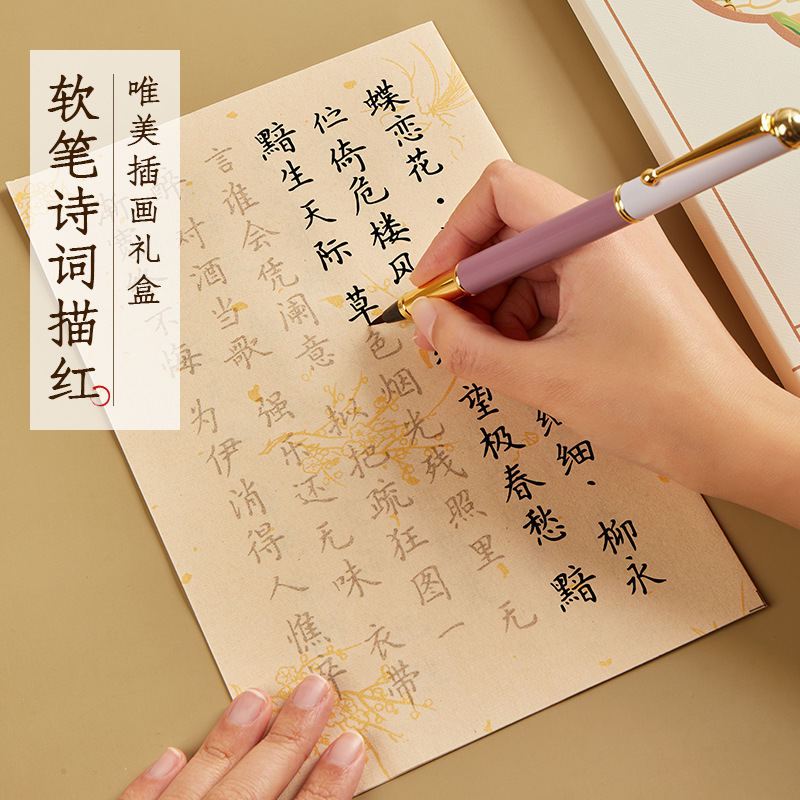 唯美插画礼盒
软笔诗词描红
蝶恋花· 细·柳永
伫倚危楼风 望极春愁 黯
黯生天际 草色烟光残照里 无
言谁会凭阑意 拟把疏狂图一
醉对酒当歌 强乐还无味 衣带
渐宽 不悔 为伊消得人憔悴